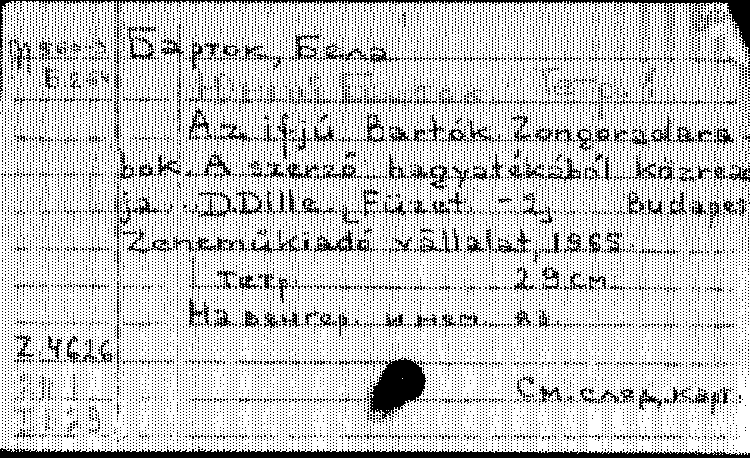 Барток, Бела
Az ifjú Bartók Zongoradara-
bok. A szerző hagyatékából közread-
ja D. Dille. [Füzet -2] Budapest
Zeneműkiadó vállalat, 1965
тетр. 29 см.
На венгер. и нем. яз.
Z.4626
См. след. карт.